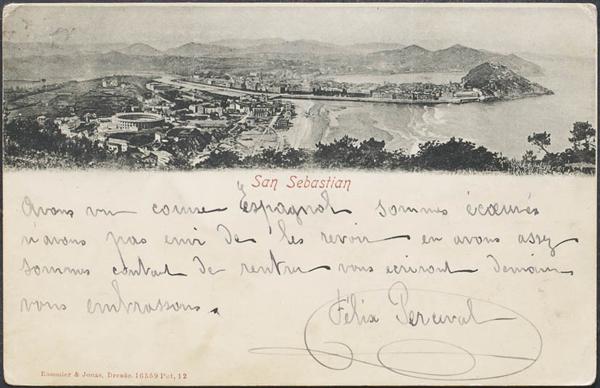 San Sebastian
Avons vu course Espagnol sommes écœurés
n'avons pas envi de les revoir en avons assez
sommes content de rentrer vous ecriront demain
vous embrassons.
Félix Perceval
Roemmler & Jonas, Dresde. 16859 Pot, 12